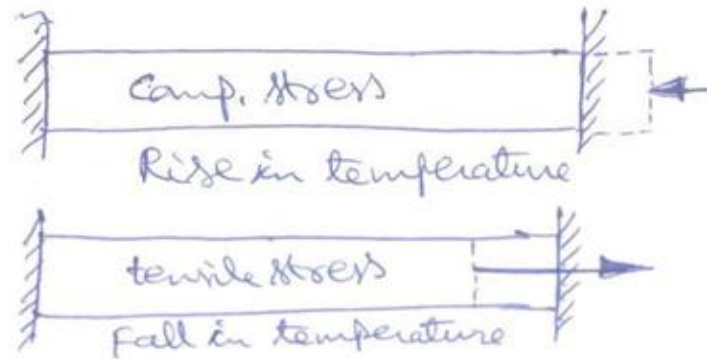 Comp. stress
Rise in temperature
tensile stress
Fall in temperature